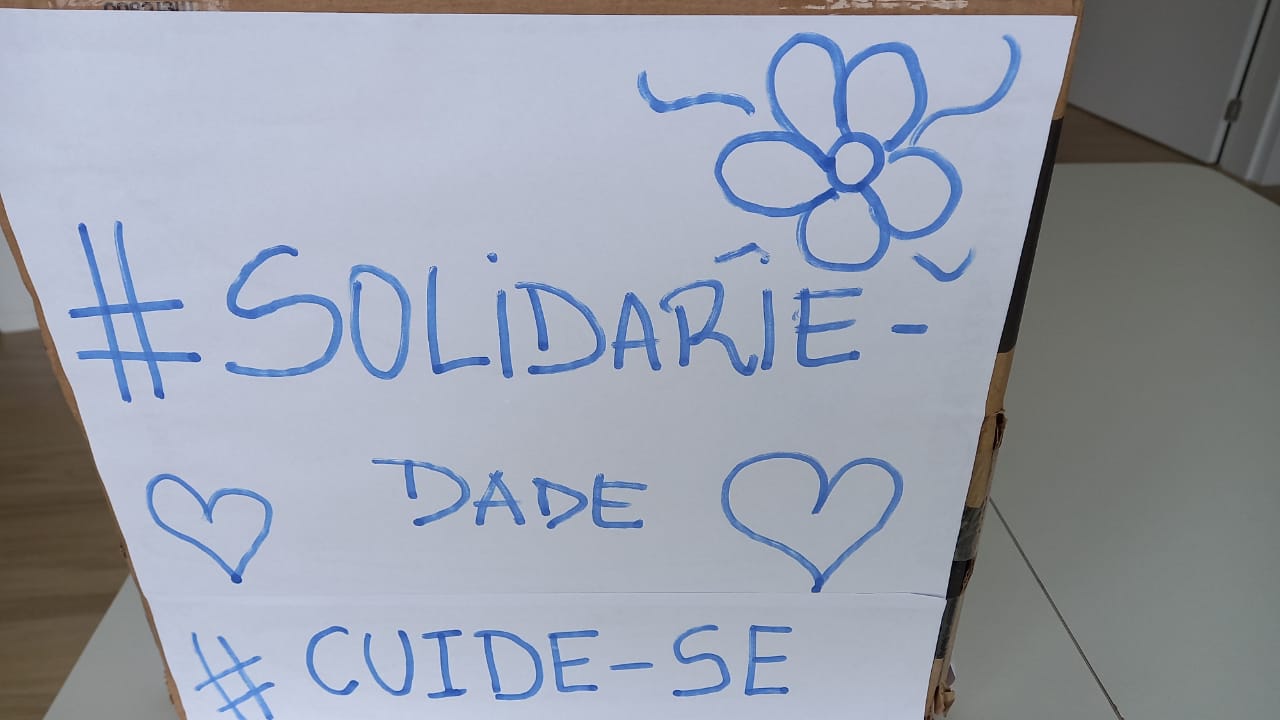 #SOLiDARÎE-
DADE
# CUIDE-SE